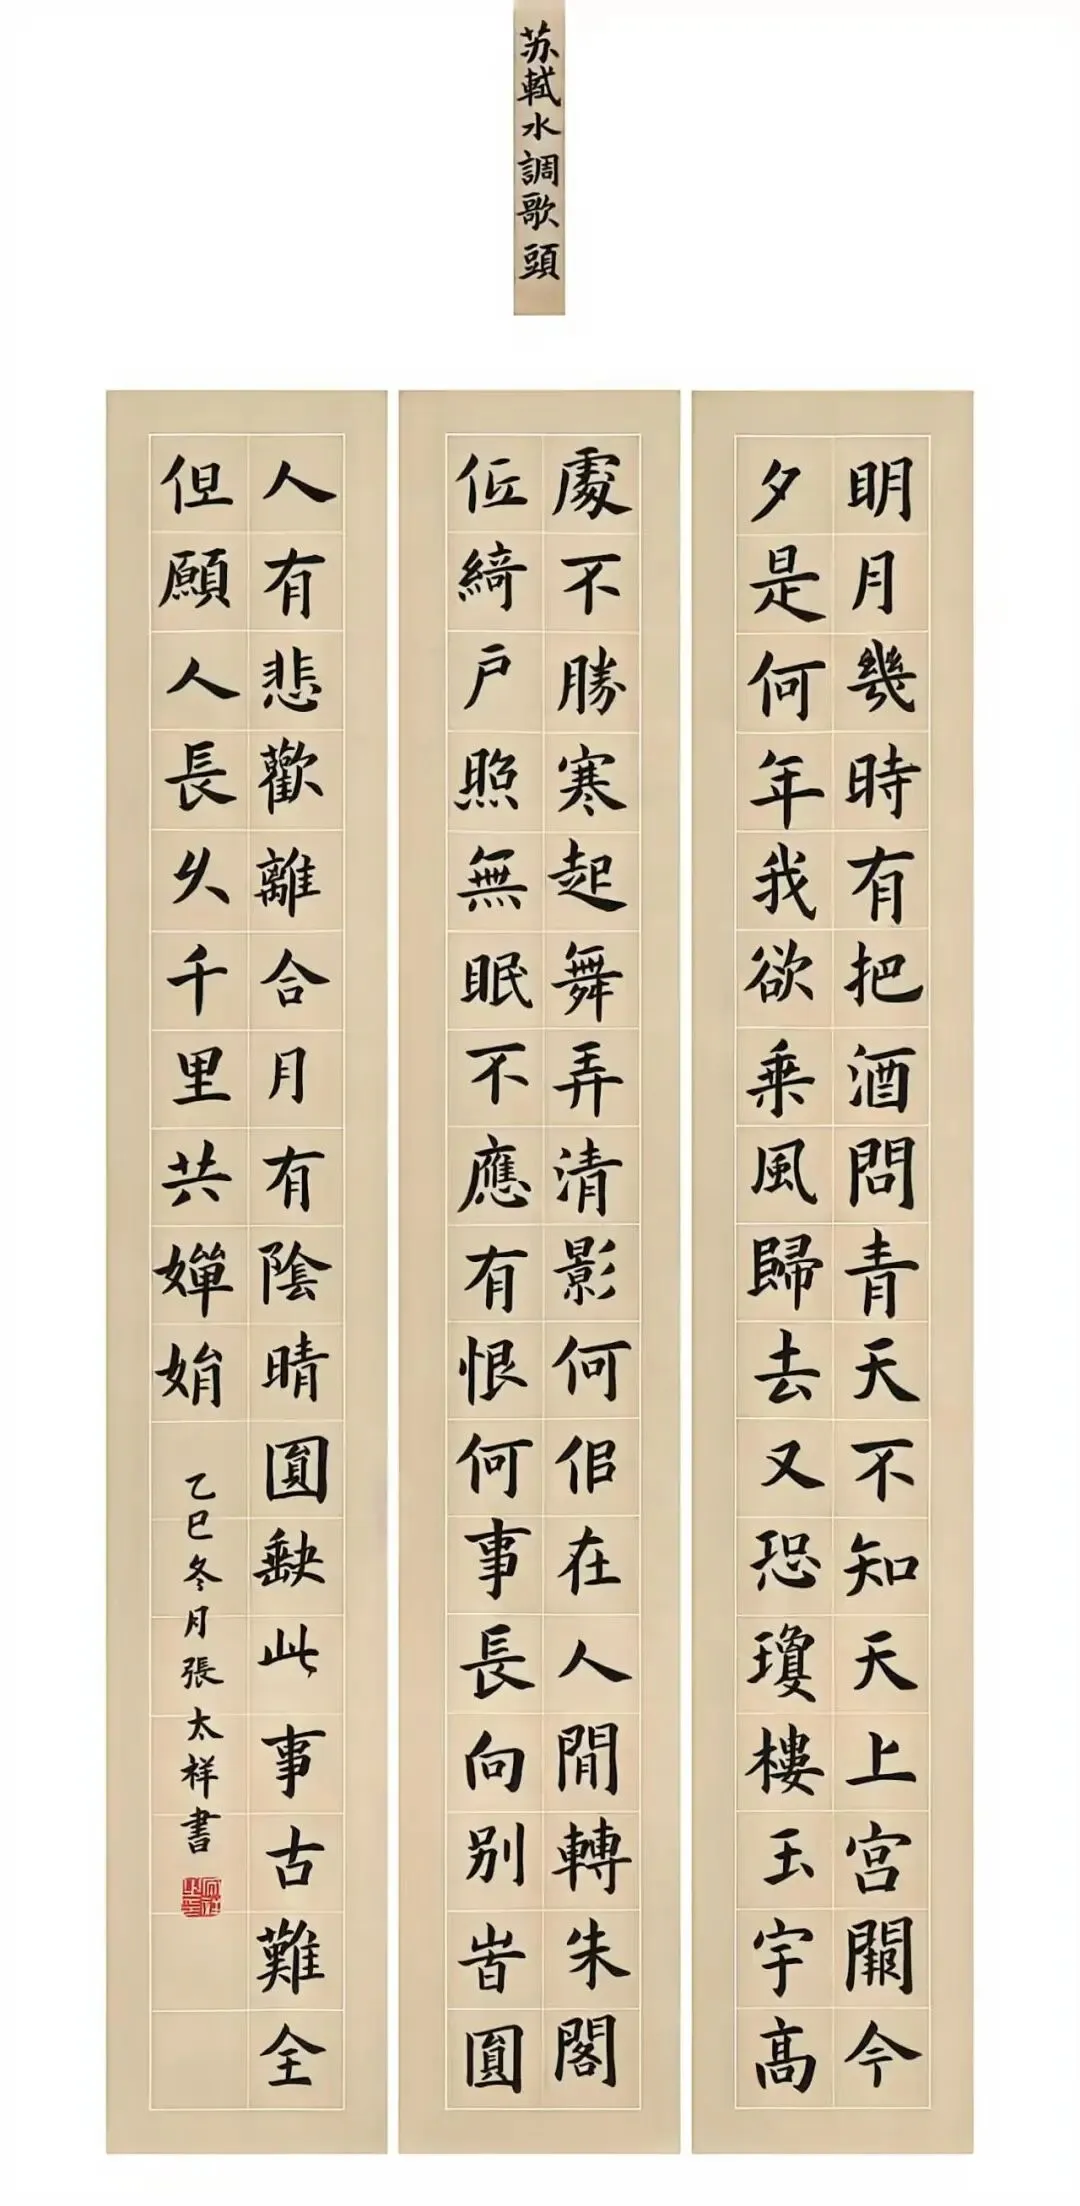 苏軾水調歌頭
明月幾時有把酒問青天不知天上宫闕今
夕是何年我欲乗風歸去又恐瓊樓玉宇高
處不勝寒起舞弄清影何佀在人閒轉朱閣
低綺户照無眠不應有恨何事長向别旹圓
人有悲歡離合月有陰晴圓缺此事古難全
但願人長久千里共嬋娟
乙巳冬月張太祥書